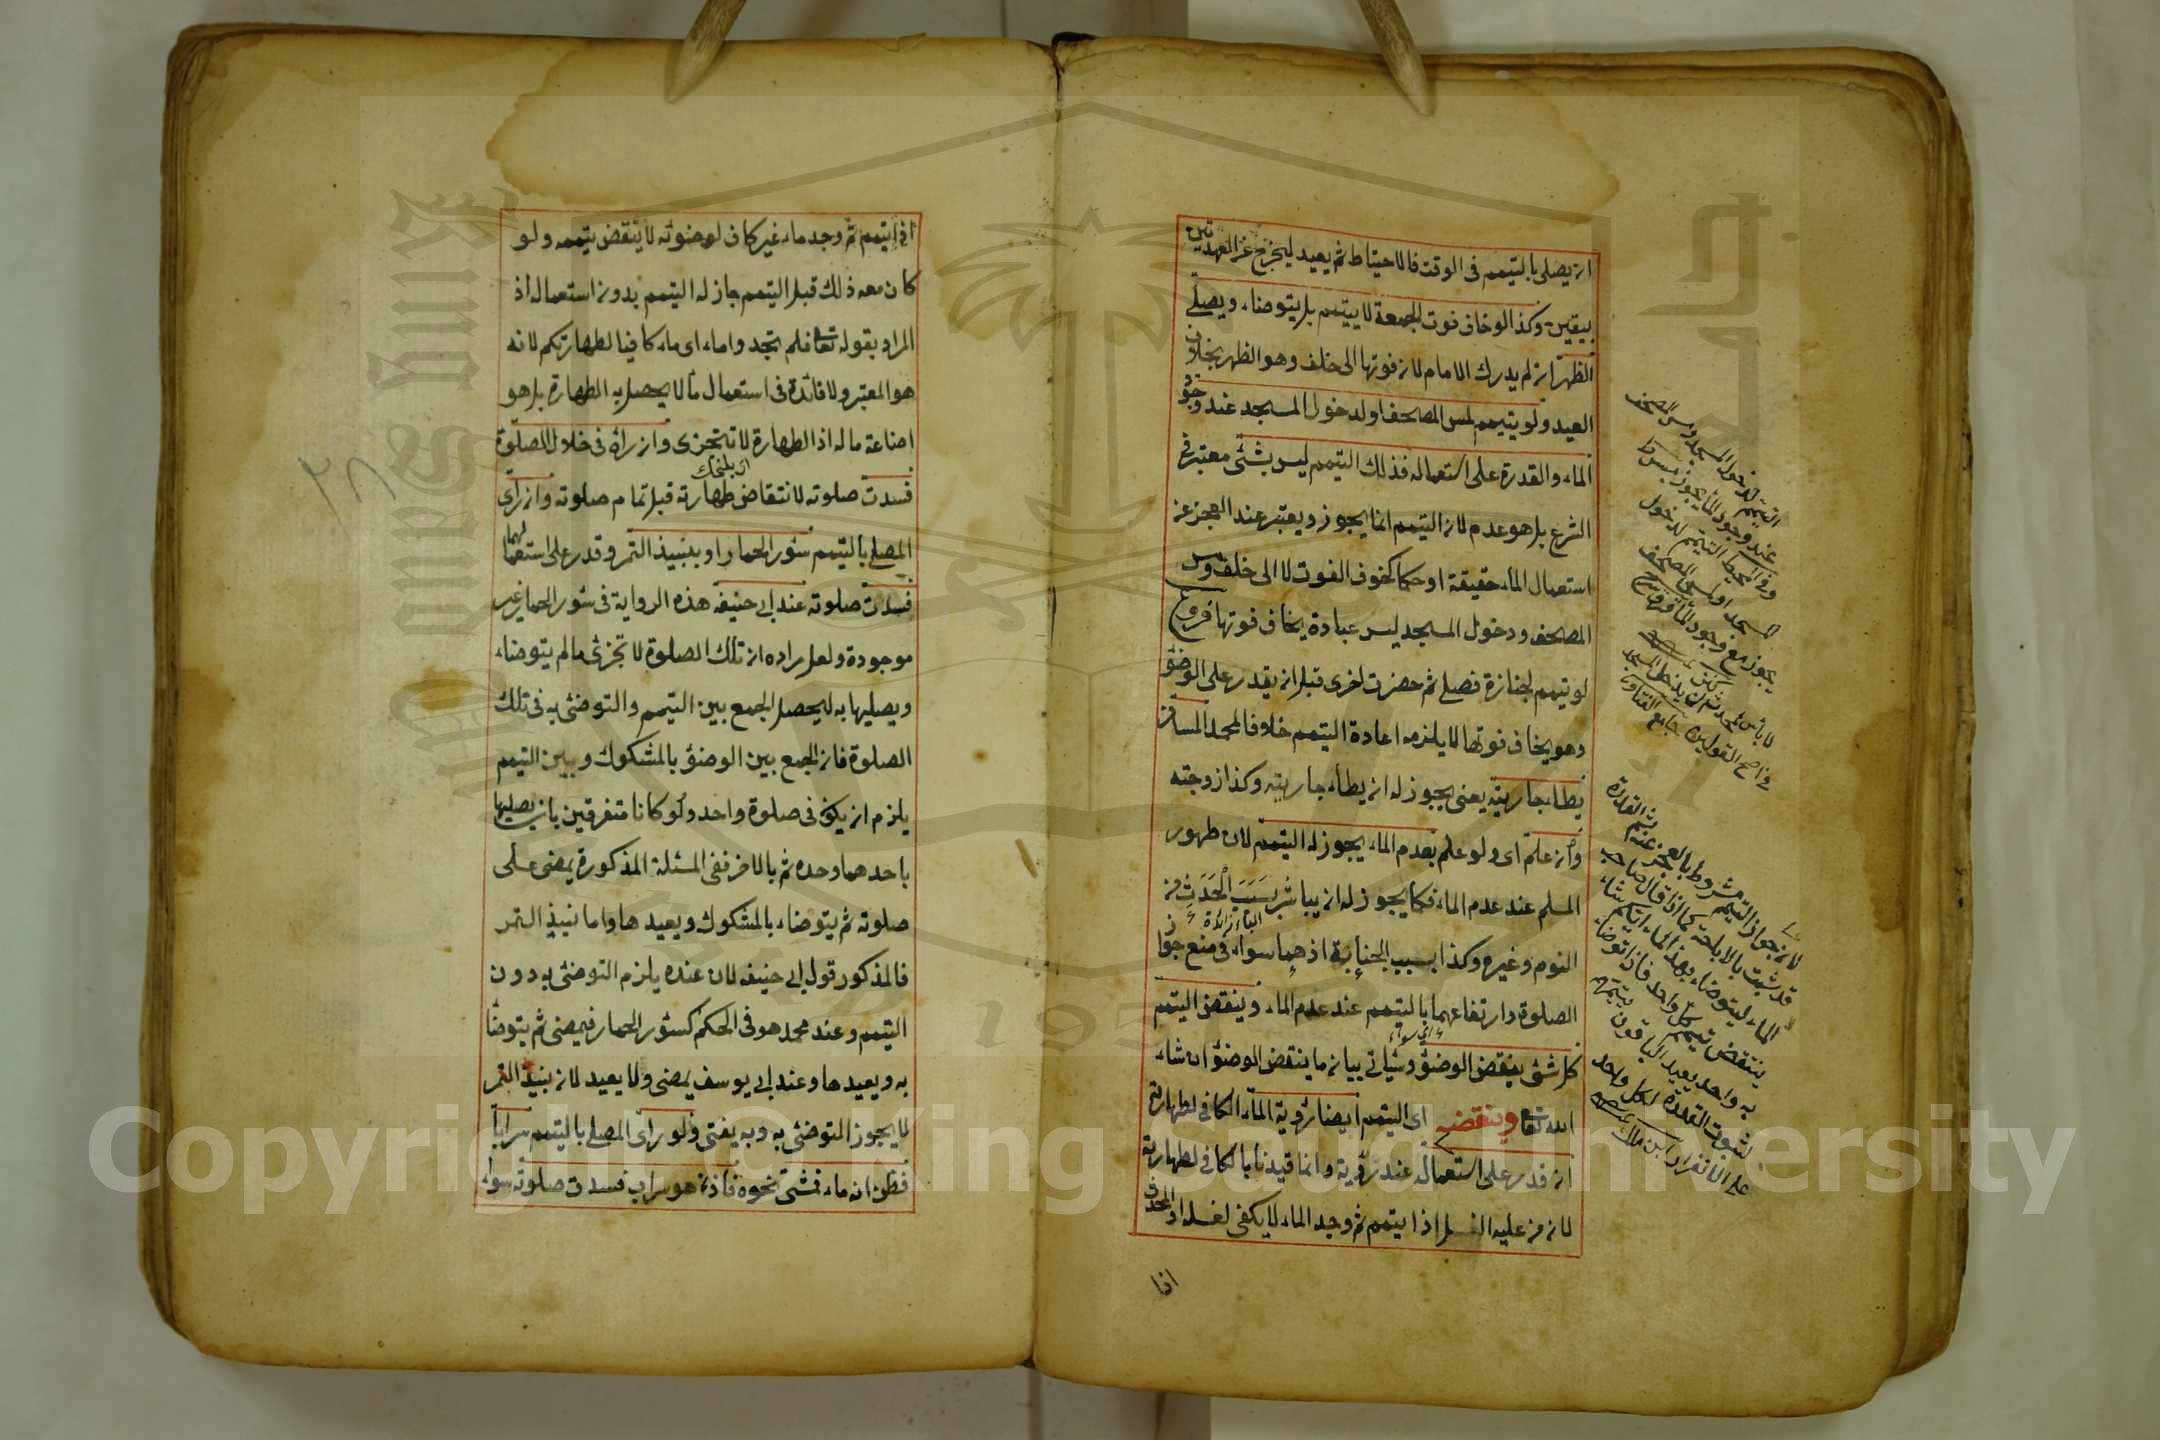 ان يصلى بالتيمم فى الوقت فالاحتياط ثم يعيد ليخرج عن العهدتين
بيقين وكذا لو خاف فوت الجمعة لا يتيمم بل يتوضاء ويصلى
الظهر ان لم يدرك الامام لان فوتها الى خلف وهو الظهر بخلاف
العيد ولو تيمم لمس المصحف او لدخول المسجد عند وجود
الماء والقدرة على استعماله فذلك التيمم ليس بشئ معتبر فى
الشرع بل هو عدم لان التيمم انما يجوز ويعتبر عند العجز عن
استعمال الماء حقيقة او حكما كخوف الفوت لا الى خلف ومس
المصحف ودخول المسجد ليس عبادة يخاف فوتها فروع
لو تيمم لجنازة فصلى ثم حضرت اخرى قبل ان يقدر على الوضؤ
وهو يخاف فوتها لا يلزمه اعادة التيمم خلافا لمحمد المسافر
يطاء جاريته يعنى يجوز له ان يطاء جاريته وكذا زوجته
وان علم اى ولو علم بعدم الماء يجوز له التيمم لان طهور
المسلم عند عدم الماء فكما يجوز له ان يباشر بسبب الحدث من
الباء زائدة
النوم وغيره وكذا بسبب الجنابة اذ هما سواء فى منع جواز
الصلوة وارتفاعهما بالتيمم عند عدم الماء وينقض التيمم
كل شئ ينقض الوضؤ وسيأتى بيان ما ينقض الوضؤ ان شاء
الله تعا وينقضه اى التيمم ايضا رؤية الماء الكافى لطهارته
ان قدر على استعماله عند رؤيته وانما قيدنا بالكافى لطهارته
لان من عليه الغسل اذا تيمم ثم وجد الماء لا يكفى لغسله او المحدث
اذا
التيمم لدخول المسجد ومس المصحف
عند وجود الماء يجوز
وفى المحيط التيمم لدخول
المسجد او لمس المصحف
يجوز مع وجود الماء
واصح القولين جامع الفتاوى
لان جواز التيمم مشروط بالعجز عند القدرة
قد ثبت بالاباحة كما اذا قال صاحب
الماء ليتوضاء بهذا الماء ايكم شاء
ينتقض تيمم كل واحد فان توضاء
به واحد يعيد الباقون تيممهم
لثبوت القدرة لكل واحد
على الانفراد ابن ملك
اذا تيمم ثم وجد ماء غير كاف لوضوئه لا ينقض تيممه ولو
كان معه ذلك قبل التيمم جاز له التيمم بدون استعماله اذ
المراد بقوله تعا فلم تجدوا ماء اى ماء كافيا لطهارتكم لانه
هو المعتبر ولا فائدة فى استعمال ما لا يحصل به الطهارة بل هو
اضاعة ماله اذ الطهارة لا تتجزى وان رأه فى خلال الصلوة
فسدت صلوته لانتقاض طهارته قبل تمام صلوته وان رأى
المصلى بالتيمم سؤر الحمار او بنبيذ التمر وقدر على استعمالهما
فسدت صلوته عند ابى حنيفه هذه الرواية فى سؤر الحمار غير
موجودة ولعل مراده ان تلك الصلوة لا تجزئ ما لم يتوضاء
ويصليها به ليحصل الجمع بين التيمم والتوضئ به فى تلك
الصلوة فان الجمع بين الوضؤ بالمشكوك وبين التيمم
يلزم ان يكون فى صلوة واحد ولو كانا متفرقين بان يصليها
باحدهما وحده ثم بالاخر ففى المسئلة المذكورة يمضى على
صلوته ثم يتوضاء بالمشكوك ويعيدها واما نبيذ التمر
فالمذكور قول ابى حنيفه لان عنده يلزم التوضئ به دون
التيمم وعند محمد هو فى الحكم كسؤر الحمار فيمضى ثم يتوضأ
به ويعيدها وعند ابى يوسف يمضى ولا يعيد لان نبيذ التمر
لا يجوز التوضئ به وبه يفتى ولو رأى المصلى بالتيمم سرابا
فظن انه ماء فمشى نحوه فاذا هو سراب فسدت صلوته سواء
٢٨
Copyright © King Saud University